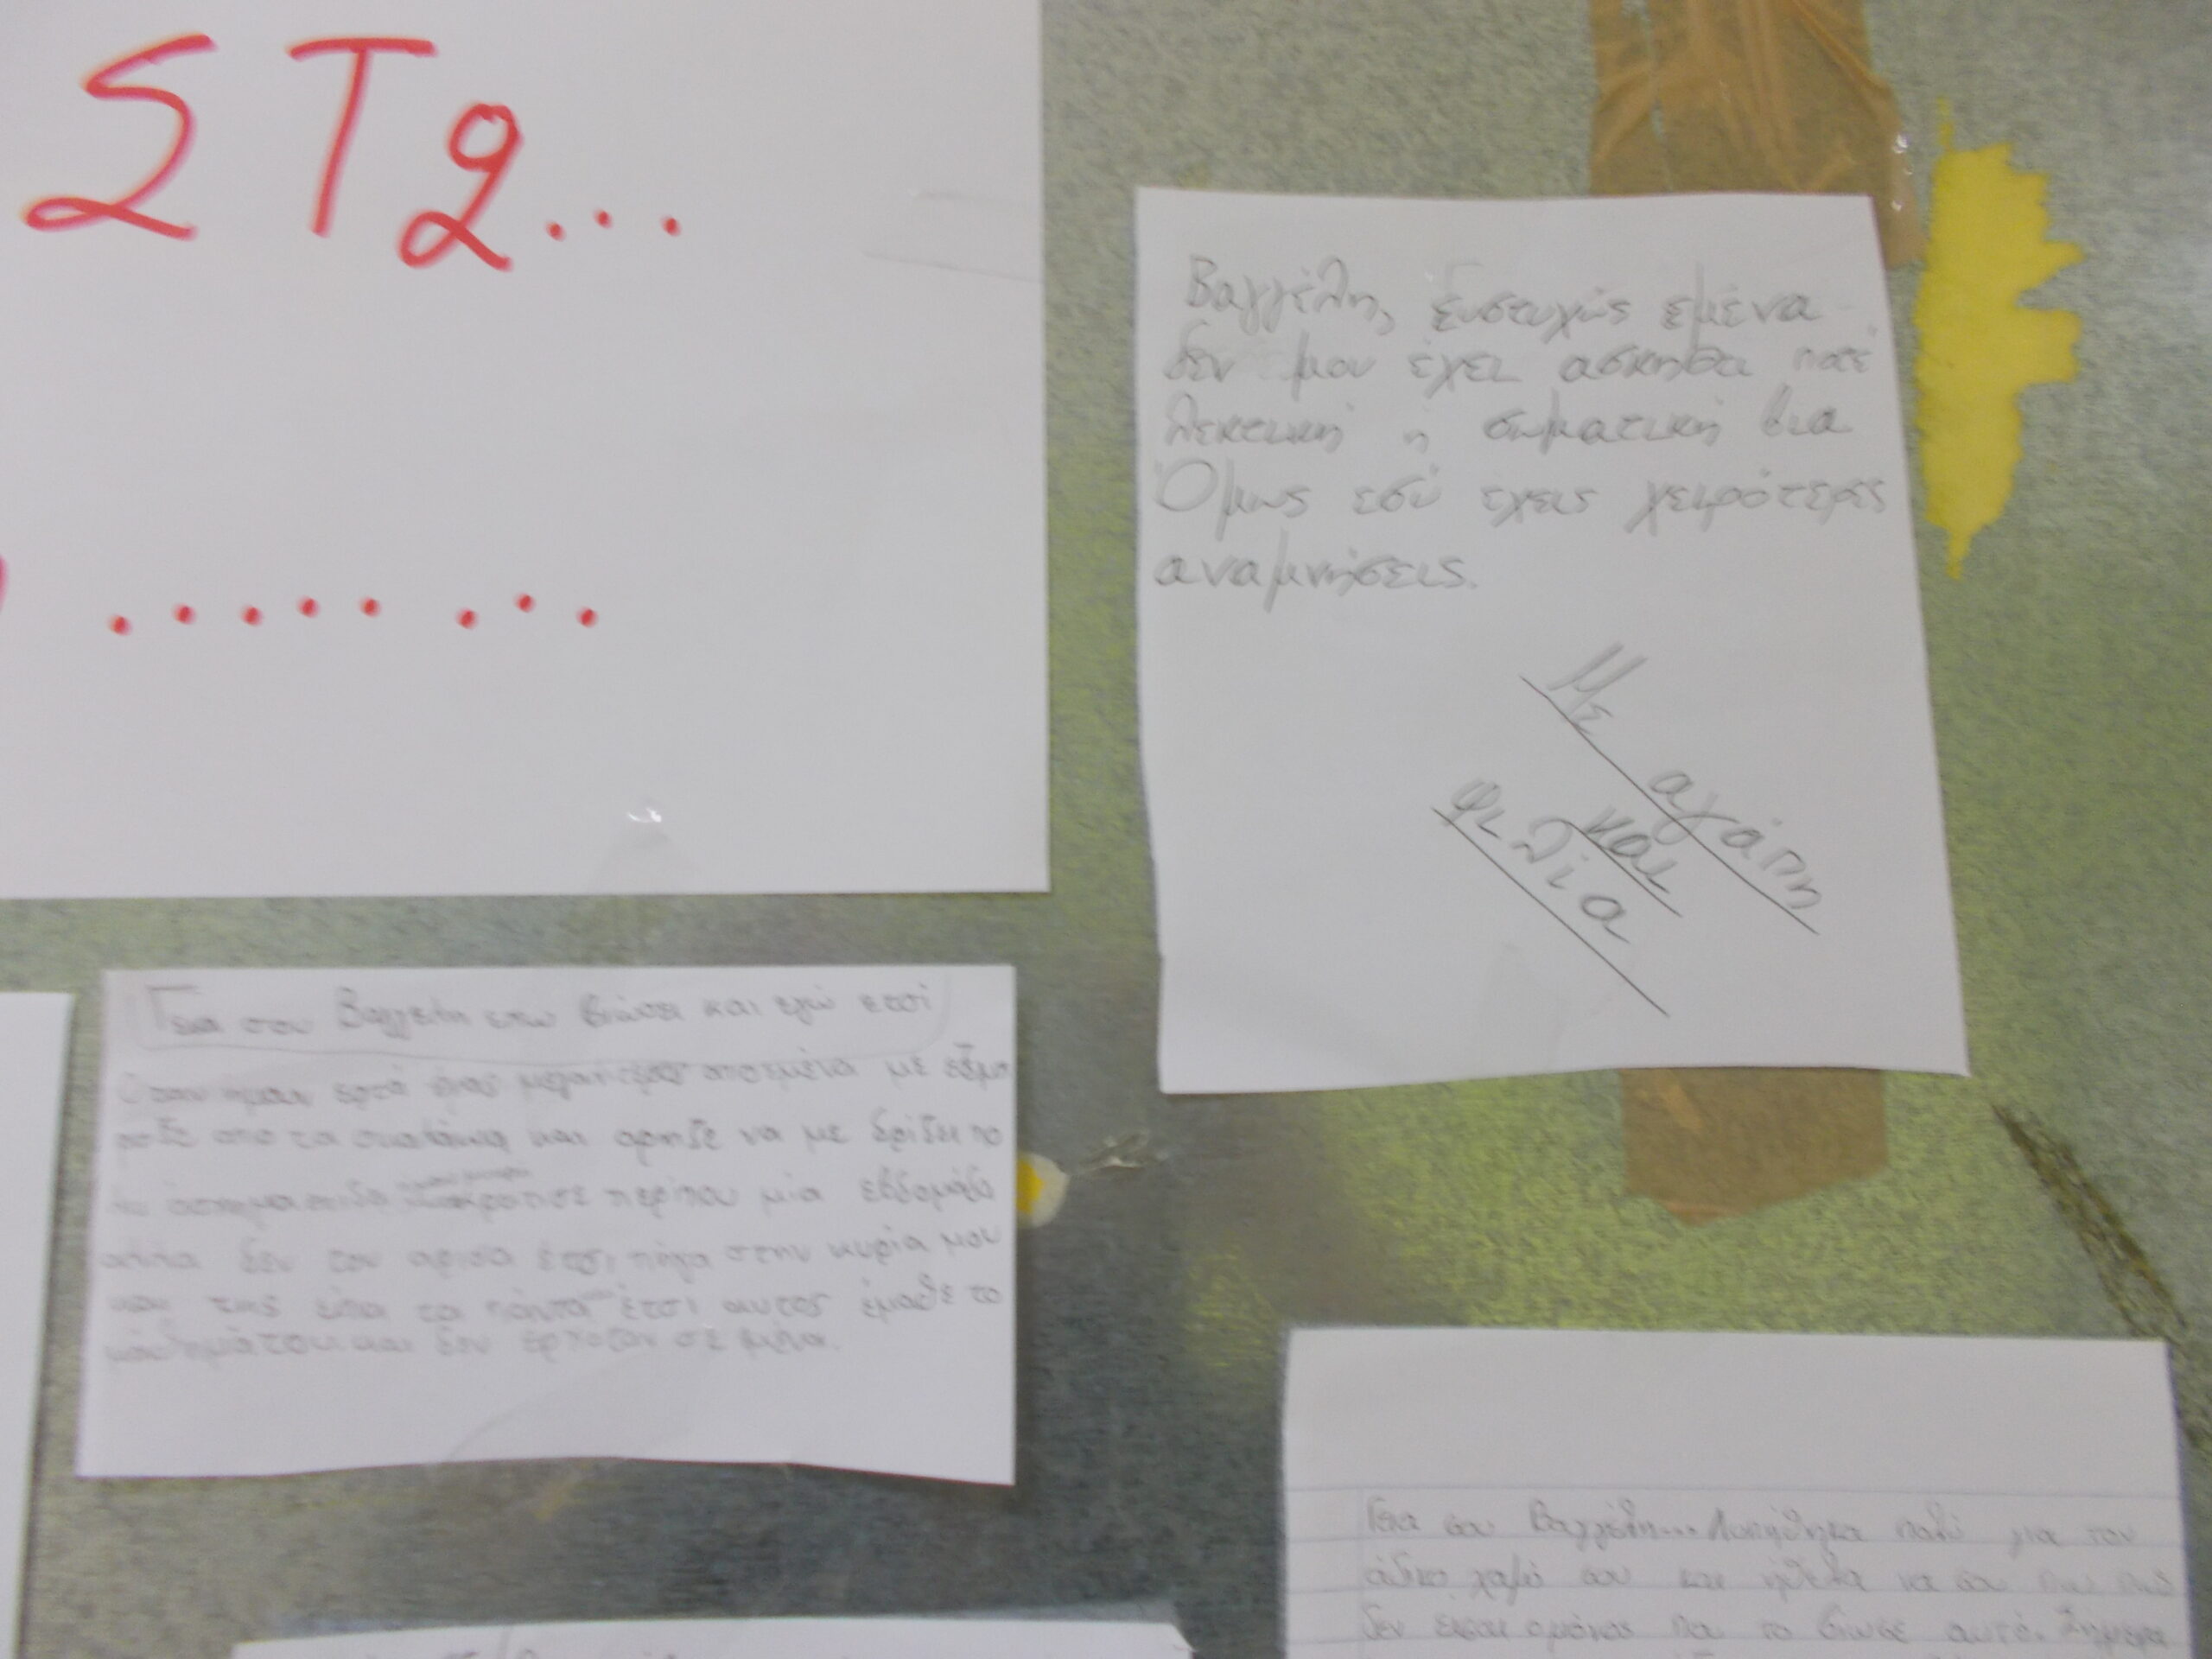 ΣΤ2...
........
Βαγγέλη, ευστυχώς εμένα
δεν μου έχει ασκηθεί ποτέ
λεκτική ή σωματική βια
Όμως εσύ έχεις χειρότερες
αναμνήσεις.
Με αγάπη
και
φιλία
Γεια σου Βαγγέλη εχω βιώσει και εγώ ετσί
Οταν ημουν εφτά ένας μεγαλύτερος από εμένα με
από τα σκαλάκια και αρηξε να με βρίζει το
περίπου μία εβδομάδα
αλλα δεν τον αφισα έτσι πήγα στην κυρία μου
και της είπα τα πάντα έτσι αυτος έμαθε το
μάθημά του και δεν ερχοταν σε μένα.
Γεια σου Βαγγέλη... Λυπήθηκα πολύ για τον
άδικο χαμό σου και ήθελα να σου πω πως
δεν είσαι ο μόνος που το βίωσε αυτό. Σήμερα